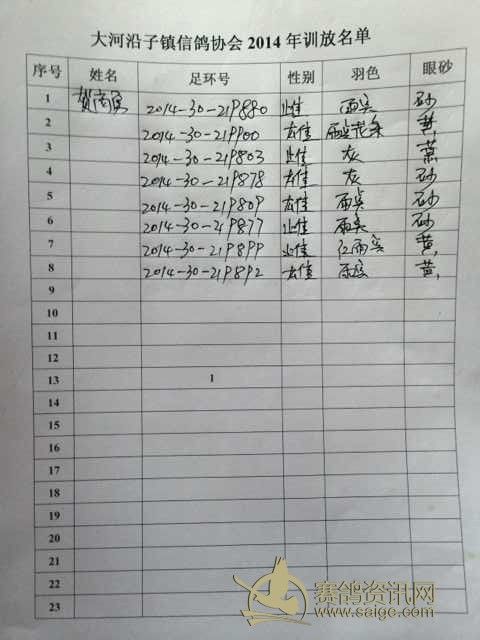 大河沿子镇信鸽协会2014年训放名单
序号 姓名 足环号 性别 羽色 眼砂
1 2014-30-219880 雌 雨点 砂
2 2014-30-219900 雄 雨点花条 黄
3 2014-30-219803 雌 灰 黄
4 2014-30-219878 雄 灰 砂
5 2014-30-219809 雄 雨点 砂
6 2014-30-219877 雌 雨点 砂
7 2014-30-219899 雌 红雨点 黄
8 2014-30-219892 雄 黄
9
10
11
12
13 1
14
15
16
17
18
19
20
21
22
23
赛鸽资讯网
www.saige.com